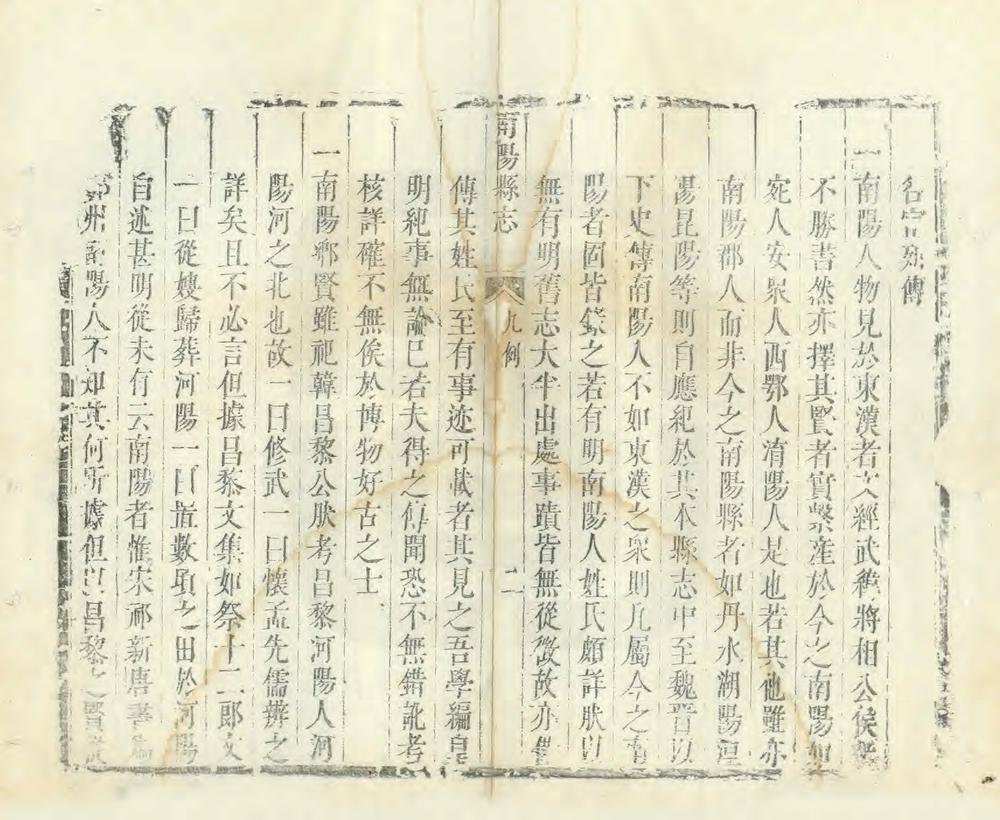 名宦列傳
一南陽人物見於東漢者文經武緯將相公侯
不勝書然亦擇其賢者實繫產於今之南陽如
宛人安眾人西鄂人淯陽人是也若其他雖亦
南陽郡人而非今之南陽縣者如丹水湖陽湼
陽昆陽等則自應紀於其本縣志中至魏晉以
下史傳南陽人不如東漢之眾則凡屬今之南
陽者固皆錄之若有明南陽人姓氏頗詳肰以
無有明舊志大半出處事蹟皆無從徵故亦
南陽縣志
凡例
二
傳其姓氏至有事迹可載者其見之吾學編皇
明紀事無論已若夫得之傳聞恐不無錯訛考
核詳確不無俟於博物好古之士
一南陽鄉賢雖祀韓昌黎公肰考昌黎河陽人河
陽河之北也故一曰修武一曰懷孟先儒辨之
詳矣且不必言但據昌黎文集如祭十二郎文
一曰從嫂歸葬河陽一曰置數頃之田於河陽
自述甚明從未有云南陽者惟宋祁新唐書爲
鄧州南陽人不知其何所據但以昌黎之賢